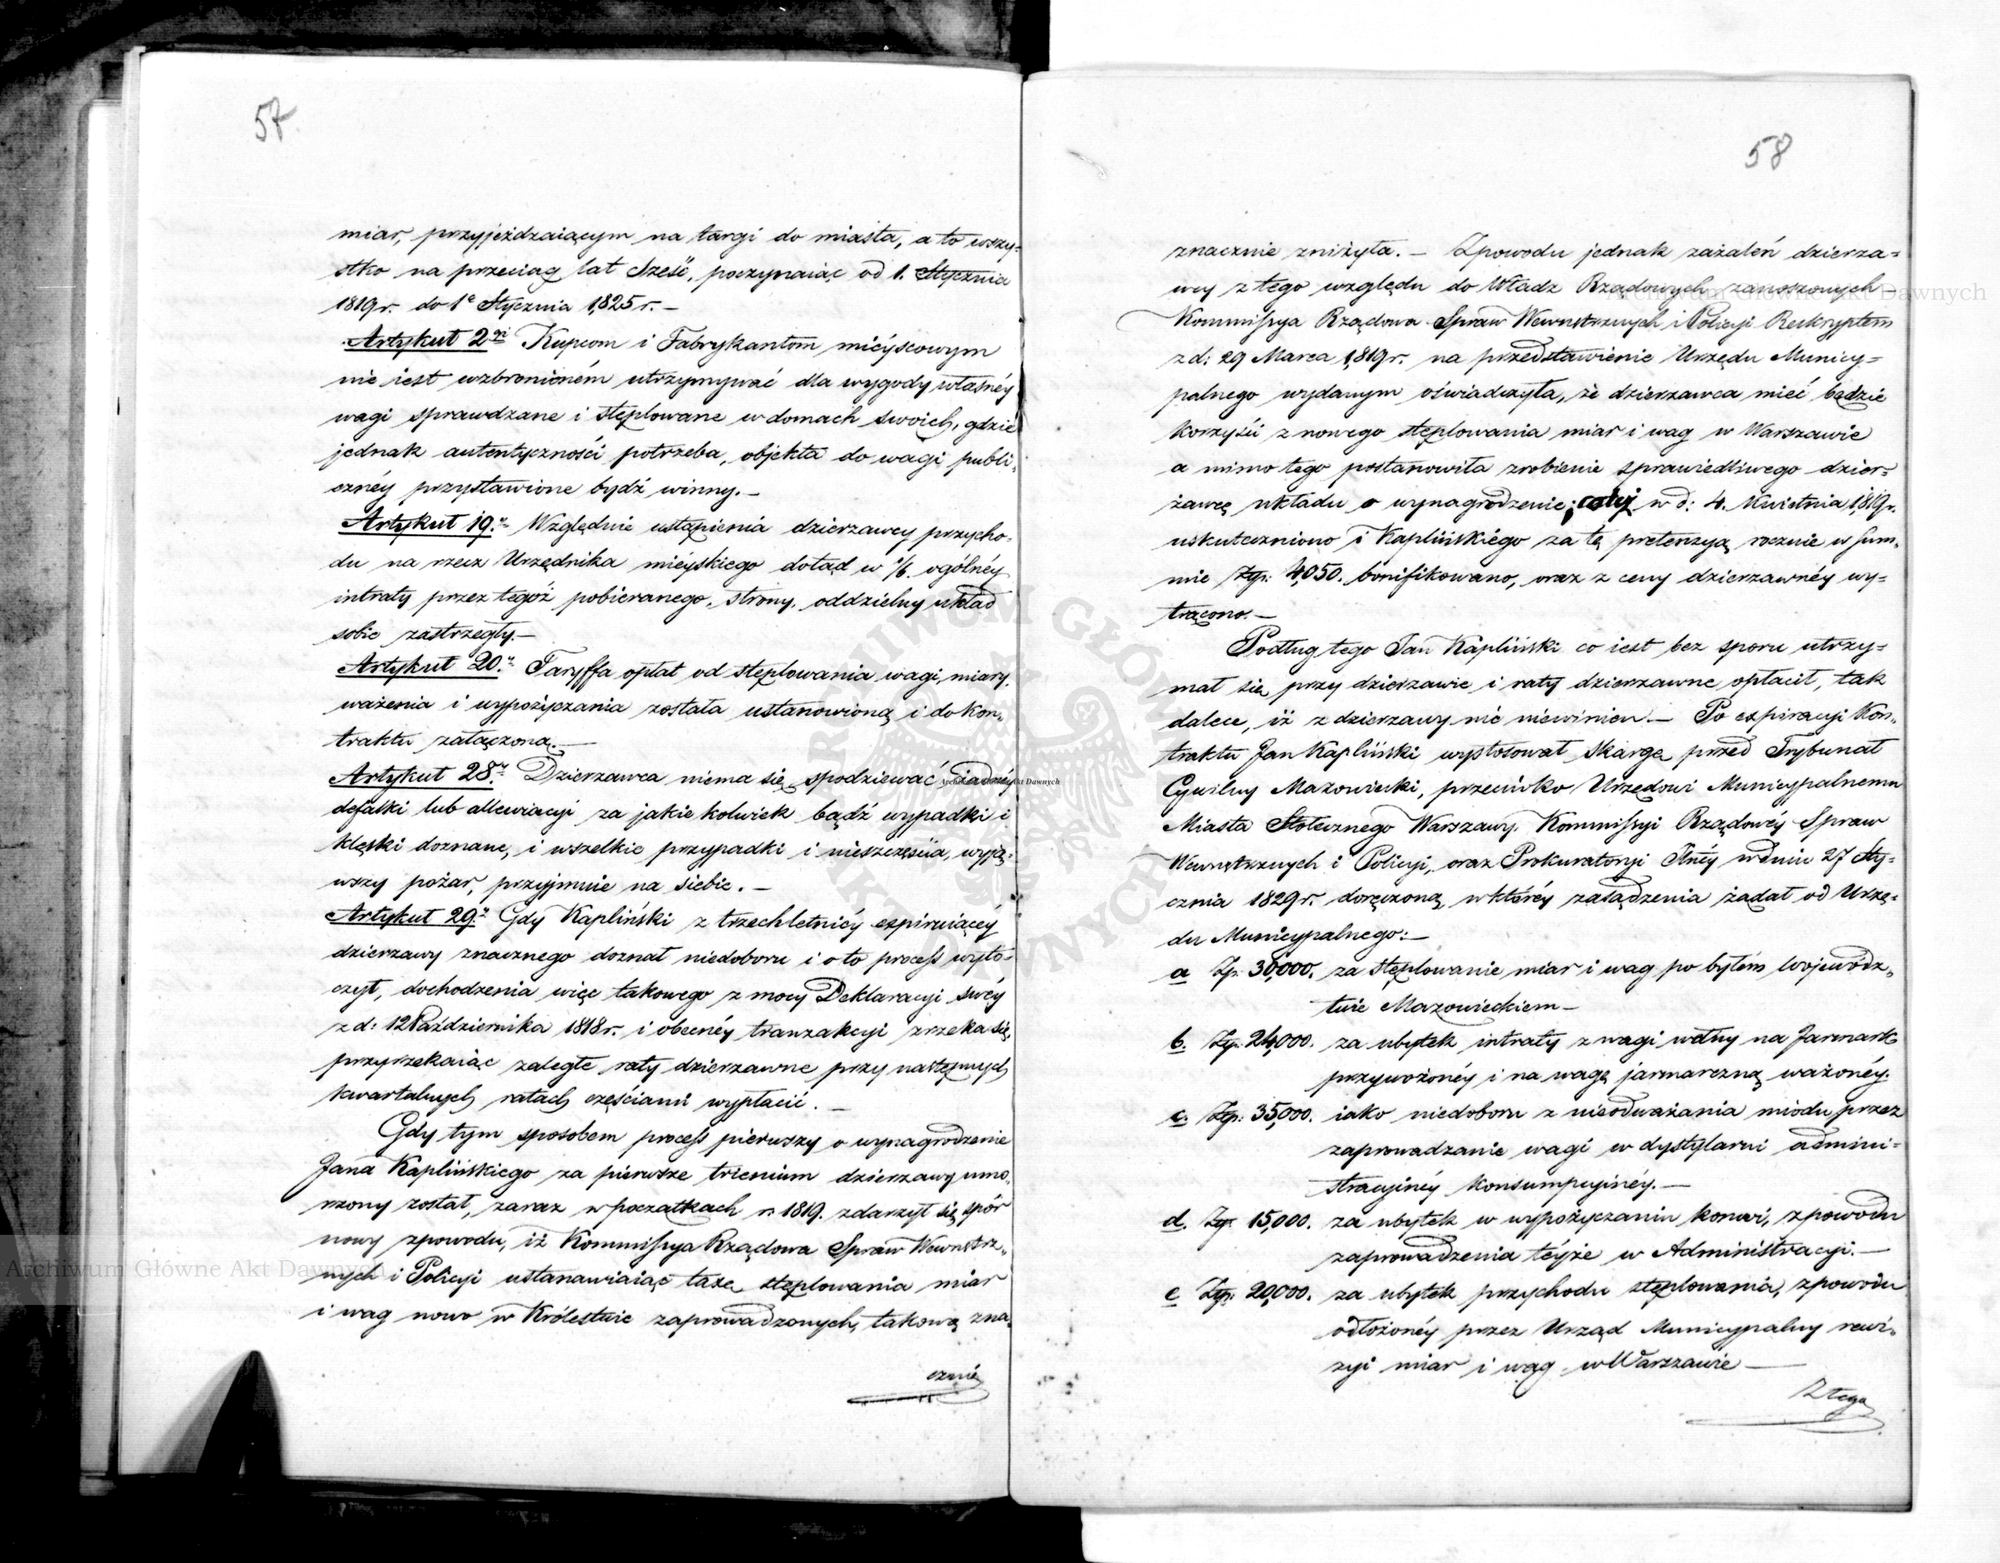 57.
miar, przyjeżdzaiącym na targi do miasta, a to wszy-
stko na przeciąg lat sześć, poczynaiąc od 1. Stycznia
1819r. do 1e Stycznia 1825 r. –
Artykuł 2gi Kupcom i Fabrykantom miéyscowym
nie iest wzbronioném utrzymywać dla wygody własnéy
wagi sprawdzane i stęplowane w domach swoich, gdzie
jednak autentyczności potrzeba, objekta do wagi publi-
cznéy przystawione bydź winny. –
Artykuł 19.y Względnie ustąpienia dzierzawcy przycho-
du na rzecz Urzędnika miéyskiego dotąd w 1/6. ogólnéy
intraty przez tegóż pobieranego, strony, oddzielny układ
sobie zastrzegły. –
Artykuł 20.y Taryffa opłat od stęplowania wagi, miary,
ważenia i wypożyczania została ustanowioną i do Kon-
traktu załączoną. –
Artykuł 28.y Dzierzawca niema się spodziewać żadnéy
defalki lub allewiacyi za jakie kolwiek bądź wypadki i
klęski doznane, i wszelkie przypadki i nieszczęścia, wyją-
wszy pożar, przyjmuie na siebie. –
Artykuł 29.y Gdy Kapliński z trzechletniéy expiruiącéy
dzierzawy znacznego doznał niedoboru i o to process wyto-
czył, dochodzenia więc takowego z mocy Deklaracyi swéy
z d: 12 Października 1818r. i obecnéy tranzakcyi zrzeka się,
przyrzekaiąc zaległe raty dzierzawne przy następnych
kwartalnych ratach częściami wypłacić. –
Gdy tym sposobem process pierwszy o wynagrodzenie
Jana Kaplińskiego za pierwsze triennium dzierzawy umo-
rzony został, zaraz w początkach r. 1819. zdarzył się spór
nowy z powodu, iż Kommissya Rządowa Spraw Wewnętrz-
nych i Policyi ustanawiaiąc taxę stęplowania miar
i wag nowo w Królestwie zaprowadzonych, takową zna-
cznie
58
znacznie zniżyła. – Z powodu jednak zażaleń dzierza-
wcy z tego względu do Władz Rządowych zanoszonych –
Kommissya Rządowa Spraw Wewnętrznych i Policyi Reskryptem
z d: 29 Marca 1819r. na przedstawienie Urzędu Municy-
palnego wydanym oświadczyła, że dzierzawca mieć będzie
korzyści z nowego stęplowania miar i wag w Warszawie
a mimo tego postanowiła zrobienie sprawiedliwego dzier-
żawcę układu o wynagrodzenie; w d: 4. Kwietnia 1819r.
uskuteczniono i Kaplińskiégo za tę pretensyą rocznie w sum-
mie Złp: 4,050. bonifikowano, oraz z ceny dzierzawnéy wy-
trącono. –
Podług tego Jan Kapliński co iest bez sporu utrzy-
mał się przy dzierzawie i raty dzierzawne opłacił, tak
dalece, iż z dzierzawy nic niewinien. – Po expiracyi Kon-
traktu Jan Kapliński wystosował skargę przed Trybunał
Cywilny Mazowiecki, przeciwko Urzędowi Municypalnemu
Miasta Stołecznego Warszawy, Kommissyi Rządowéy Spraw
Wewnętrznych i Policyi, oraz Prokuratoryi Jlnéy w dniu 27 Sty-
cznia 1829r. doręczoną, w któréy zasądzenia żądał od Urzę-
du Municypalnego: –
a Zp. 30,000. za stęplowanie miar i wag po byłém Wojewódz-
twie Mazowieckiem –
b. Złp. 24,000. za ubytek intraty z wagi wełny na Jarmark
przywożonéy i na wagę jarmarczną ważonéy.
c. Złp. 35,000. iako niedoboru z nieodważania miodu przez
zaprowadzanie wagi w dystylarni admini-
stracyinéy konsumpcyinéy. –
d. Złp. 15,000. za ubytek w wypożyczaniu konwi, z powodu
zaprowadzenia téyże w Administracyi. –
e Złp. 20,000. za ubytek przychodu stęplowania, z powodu
odłożonéy przez Urząd Municypalny rewi-
zyi miar i wag w Warszawie –
Z tego
Archiwum Główne Akt Dawnych
Archiwum Główne Akt Dawnych
Archiwum Główne Akt Dawnych
ARCHIWUM GŁÓWNE AKT DAWNYCH